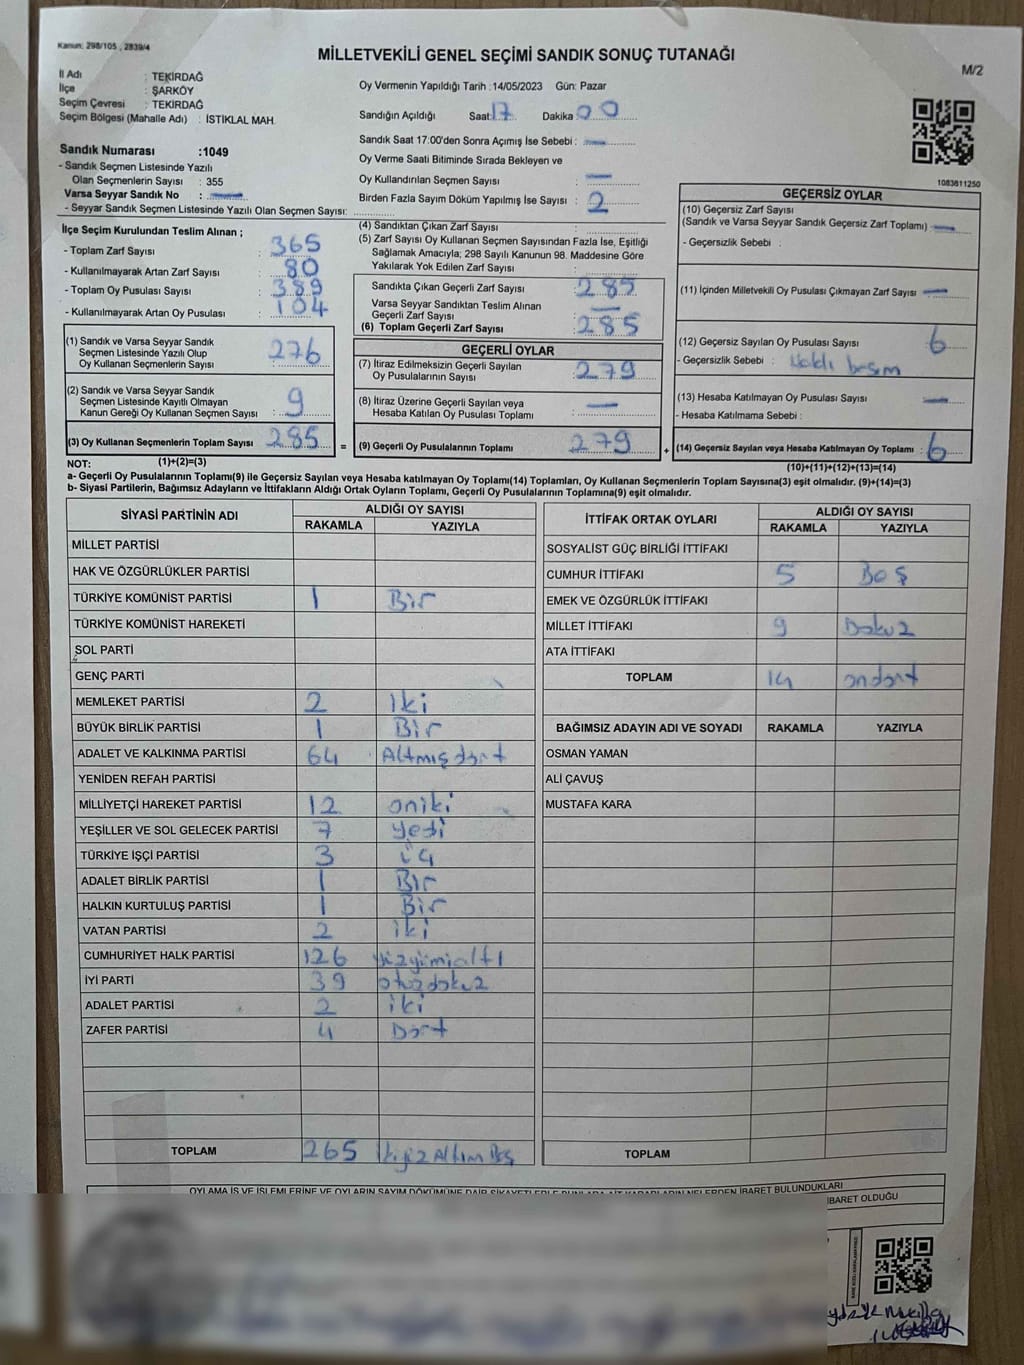 Kanun: 298/105 , 2839/4
MİLLETVEKİLİ GENEL SEÇİMİ SANDIK SONUÇ TUTANAĞI
M/2
İl Adı : TEKİRDAĞ
İlçe : ŞARKÖY
Seçim Çevresi : TEKİRDAĞ
Seçim Bölgesi (Mahalle Adı) : İSTİKLAL MAH.
Sandık Numarası :1049
- Sandık Seçmen Listesinde Yazılı
Olan Seçmenlerin Sayısı : 355
Varsa Seyyar Sandık No : —
- Seyyar Sandık Seçmen Listesinde Yazılı Olan Seçmen Sayısı:
Oy Vermenin Yapıldığı Tarih :14/05/2023 Gün: Pazar
Sandığın Açıldığı Saat: 17 Dakika 00
Sandık Saat 17:00'den Sonra Açımış İse Sebebi : —
Oy Verme Saati Bitiminde Sırada Bekleyen ve
Oy Kullandırılan Seçmen Sayısı : —
Birden Fazla Sayım Döküm Yapılmış İse Sayısı : 2
1083811250
İlçe Seçim Kurulundan Teslim Alınan ;
- Toplam Zarf Sayısı : 365
- Kullanılmayarak Artan Zarf Sayısı : 80
- Toplam Oy Pusulası Sayısı : 389
- Kullanılmayarak Artan Oy Pusulası : 104
(1) Sandık ve Varsa Seyyar Sandık
Seçmen Listesinde Yazılı Olup
Oy Kullanan Seçmenlerin Sayısı : 276
(2) Sandık ve Varsa Seyyar Sandık
Seçmen Listesinde Kayıtlı Olmayan
Kanun Gereği Oy Kullanan Seçmen Sayısı : 9
(3) Oy Kullanan Seçmenlerin Toplam Sayısı : 285
(1)+(2)=(3)
(4) Sandıktan Çıkan Zarf Sayısı :
(5) Zarf Sayısı Oy Kullanan Seçmen Sayısından Fazla İse, Eşitliği
Sağlamak Amacıyla; 298 Sayılı Kanunun 98. Maddesine Göre
Yakılarak Yok Edilen Zarf Sayısı :
Sandıkta Çıkan Geçerli Zarf Sayısı : 285
Varsa Seyyar Sandıktan Teslim Alınan
Geçerli Zarf Sayısı : —
(6) Toplam Geçerli Zarf Sayısı : 285
GEÇERLİ OYLAR
(7) İtiraz Edilmeksizin Geçerli Sayılan
Oy Pusulalarının Sayısı : 279
(8) İtiraz Üzerine Geçerli Sayılan veya
Hesaba Katılan Oy Pusulası Toplamı : —
= (9) Geçerli Oy Pusulalarının Toplamı : 279
GEÇERSİZ OYLAR
(10) Geçersiz Zarf Sayısı
(Sandık ve Varsa Seyyar Sandık Geçersiz Zarf Toplamı) —
- Geçersizlik Sebebi :
(11) İçinden Milletvekili Oy Pusulası Çıkmayan Zarf Sayısı —
(12) Geçersiz Sayılan Oy Pusulası Sayısı : 6
- Geçersizlik Sebebi :
(13) Hesaba Katılmayan Oy Pusulası Sayısı : —
- Hesaba Katılmama Sebebi :
+ (14) Geçersiz Sayılan veya Hesaba Katılmayan Oy Toplamı : 6
(10)+(11)+(12)+(13)=(14)
NOT:
a- Geçerli Oy Pusulalarının Toplamı(9) ile Geçersiz Sayılan veya Hesaba katılmayan Oy Toplamı(14) Toplamları, Oy Kullanan Seçmenlerin Toplam Sayısına(3) eşit olmalıdır. (9)+(14)=(3)
b- Siyasi Partilerin, Bağımsız Adayların ve İttifakların Aldığı Ortak Oyların Toplamı, Geçerli Oy Pusulalarının Toplamına(9) eşit olmalıdır.
SİYASİ PARTİNİN ADI ALDIĞI OY SAYISI
RAKAMLA YAZIYLA
MİLLET PARTİSİ
HAK VE ÖZGÜRLÜKLER PARTİSİ
TÜRKİYE KOMÜNİST PARTİSİ 1 Bir
TÜRKİYE KOMÜNİST HAREKETİ
SOL PARTİ
GENÇ PARTİ
MEMLEKET PARTİSİ 2 iki
BÜYÜK BİRLİK PARTİSİ 1 Bir
ADALET VE KALKINMA PARTİSİ 64 Altmış dört
YENİDEN REFAH PARTİSİ
MİLLİYETÇİ HAREKET PARTİSİ 12 oniki
YEŞİLLER VE SOL GELECEK PARTİSİ 7 yedi
TÜRKİYE İŞÇİ PARTİSİ 3 üç
ADALET BİRLİK PARTİSİ 1 Bir
HALKIN KURTULUŞ PARTİSİ 1 Bir
VATAN PARTİSİ 2 iki
CUMHURİYET HALK PARTİSİ 126 yüzyirmialtı
İYİ PARTİ 39 otuzdokuz
ADALET PARTİSİ 2 iki
ZAFER PARTİSİ 4 Dört
TOPLAM 265 ikiyüz Altmış Beş
İTTİFAK ORTAK OYLARI ALDIĞI OY SAYISI
RAKAMLA YAZIYLA
SOSYALİST GÜÇ BİRLİĞİ İTTİFAKI
CUMHUR İTTİFAKI 5 Beş
EMEK VE ÖZGÜRLÜK İTTİFAKI
MİLLET İTTİFAKI 9 Dokuz
ATA İTTİFAKI
TOPLAM 14 ondört
BAĞIMSIZ ADAYIN ADI VE SOYADI RAKAMLA YAZIYLA
OSMAN YAMAN
ALİ ÇAVUŞ
MUSTAFA KARA
TOPLAM
İBARET BULUNDUKLARI
İBARET OLDUĞU